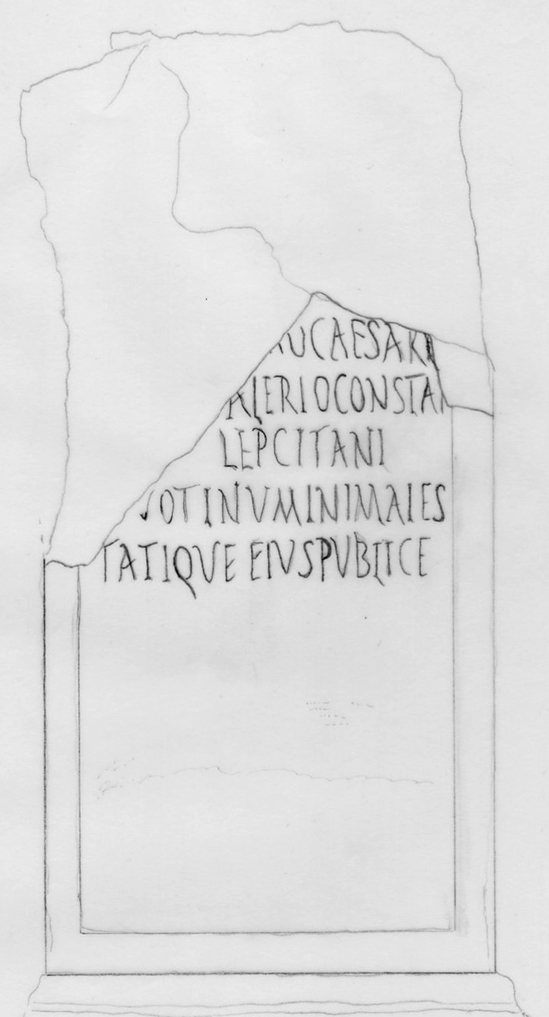 UCAESARI
ALERIOCONSTAN
LEPCITANI
VOTINVMINIMAIES
TATIQVE EIVSPVBLICE